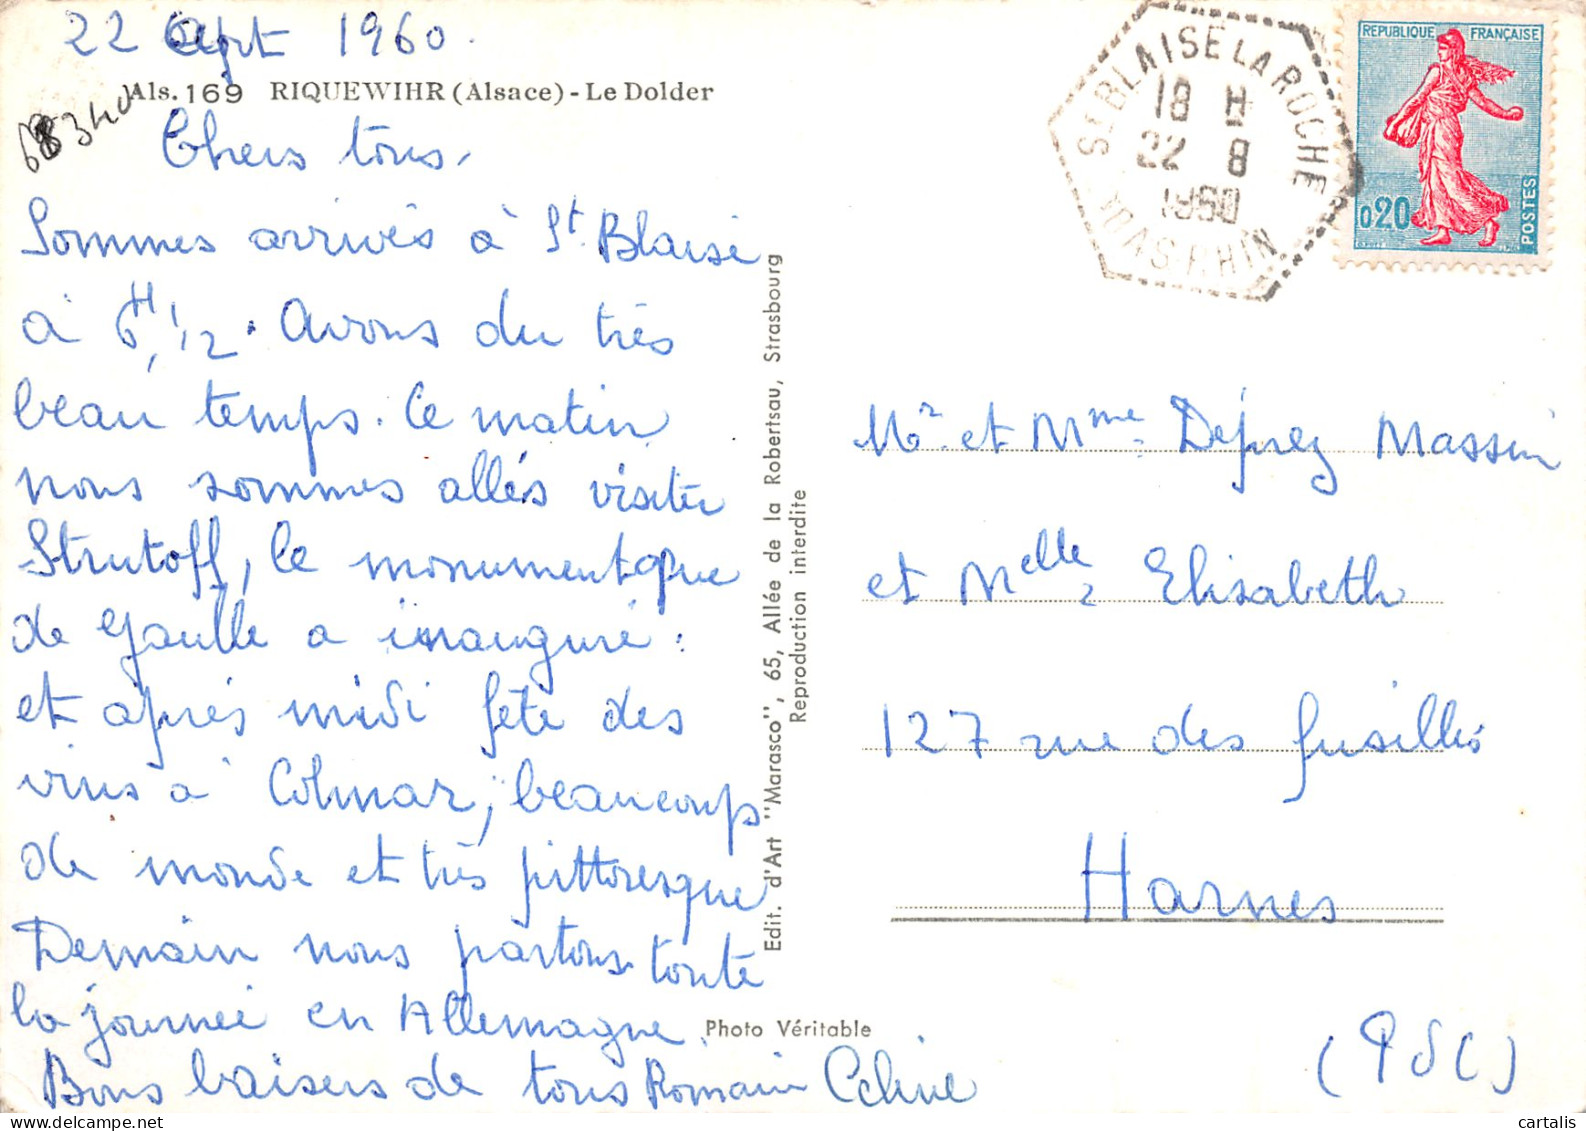 22 Agpt 1960.
Als. 169 RIQUEWIHR (Alsace) - Le Dolder
68340
Chers tous,
Sommes arrivés à St Blaise
à 6H 1/2. Avons du très
beau temps. Ce matin
nous sommes allés visiter
Strutoff, le monument que
de Gaulle a inauguré :
et après midi fête des
vins à Colmar, beaucoup
de monde et très pittoresque
Demain nous partons toute
la journée en Allemagne.
Bons baisers de tous Romain Céline
Edit. d'Art "Marasco", 65, Allée de la Robertsau, Strasbourg
Reproduction interdite
Photo Véritable
ST BLAISE LA ROCHE
18 H
22 8
1960
BAS-RHIN
RÉPUBLIQUE FRANÇAISE
0,20
POSTES
Mr et Mme Deprez Massin
et Melle Elisabeth
127 rue des fusillés
Harnes
(P d C)
cartalis